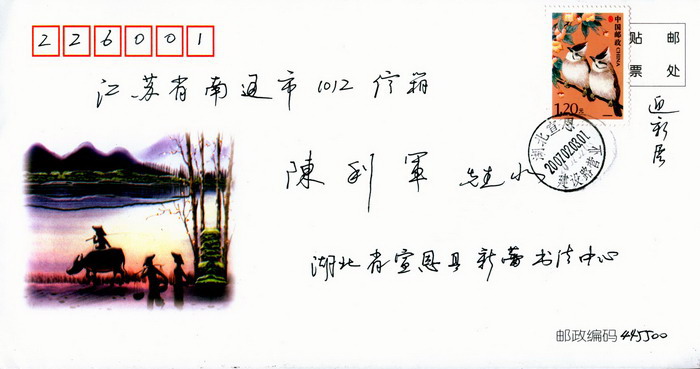 226001
中国邮政 CHINA
1.20元
贴 邮
票 处
江苏省南通市1012信箱
迎新居
湖北宣恩
2007.02.03.01
建设路营
陳利軍 先生收
湖北省宣恩县新蕾书法中心
邮政编码 445500